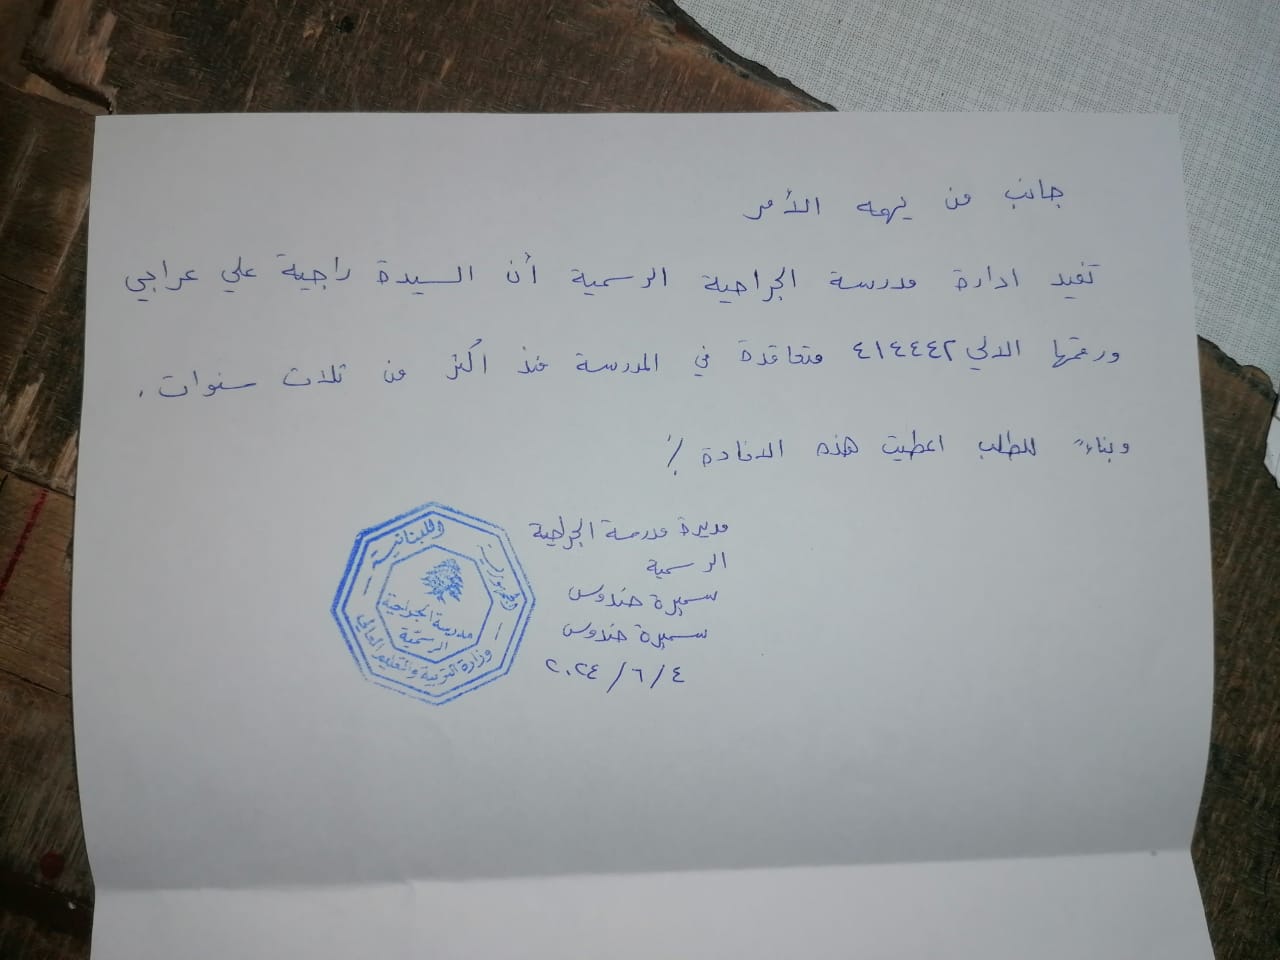 جانب من يهمه الأمر
تفيد ادارة مدرسة الجراحية الرسمية أن السيدة راجية علي عراجي
ورقمها الالي ٤١٤٤٤٢ متعاقدة في المدرسة منذ اكثر من ثلاث سنوات.
وبناءً للطلب اعطيت هذه الافادة ./
مديرة مدرسة الجراحية
الرسمية
سميرة هندوس
سميرة هندوس
٢٠٢٤/٦/٤
الجمهورية اللبنانية
مدرسة الجراحية
الرسمية
وزارة التربية والتعليم العالي